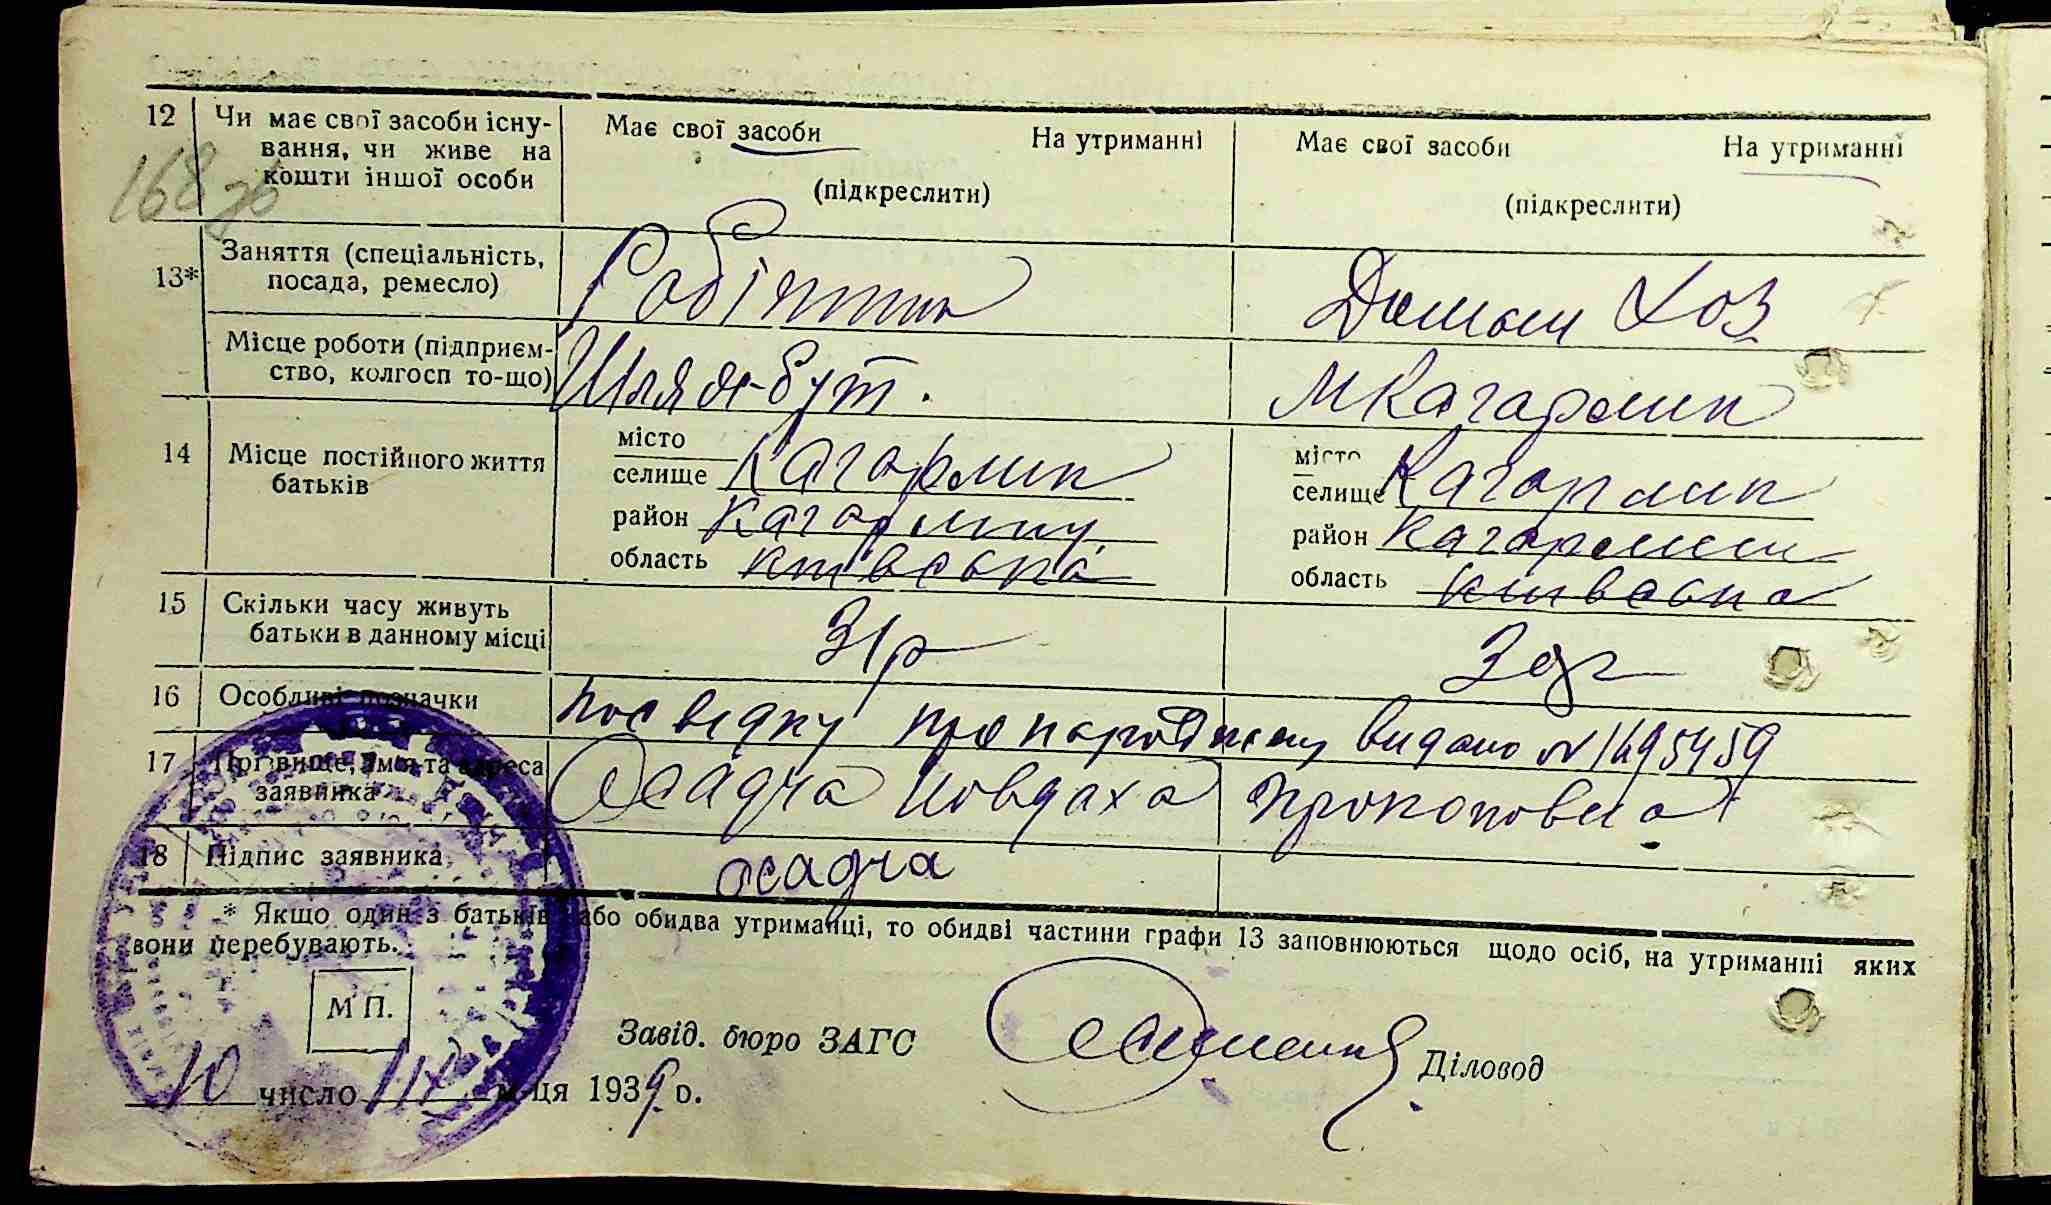 12 Чи має свої засоби існу-
вання, чи живе на
кошти іншої особи
Має свої засоби На утриманні
(підкреслити)
Має свої засоби На утриманні
(підкреслити)
168 зв
13* Заняття (спеціальність,
посада, ремесло)
Робітник
Домаш Хоз
Місце роботи (підприєм-
ство, колгосп то-що)
Шлях-бут.
М Кагарлик
14 Місце постійного життя
батьків
місто
селище Кагарлик
район Кагарлицьк
область Київська
місто
селище Кагарлик
район Кагарлицьк
область Київська
15 Скільки часу живуть
батьки в данному місці
31р
16 Особливі позначки
Посвідку про народжену видано № 1495459
17 Прізвище, ймя та адреса
заявника
Осадча Явдоха Прокоповна
18 Підпис заявника
осадча
* Якщо один з батьків або обидва утриманці, то обидві частини графи 13 заповнюються щодо осіб, на утриманні яких
вони перебувають.
М П.
Завід. бюро ЗАГС
Діловод
10 число ІІІ м-ця 1939 р.